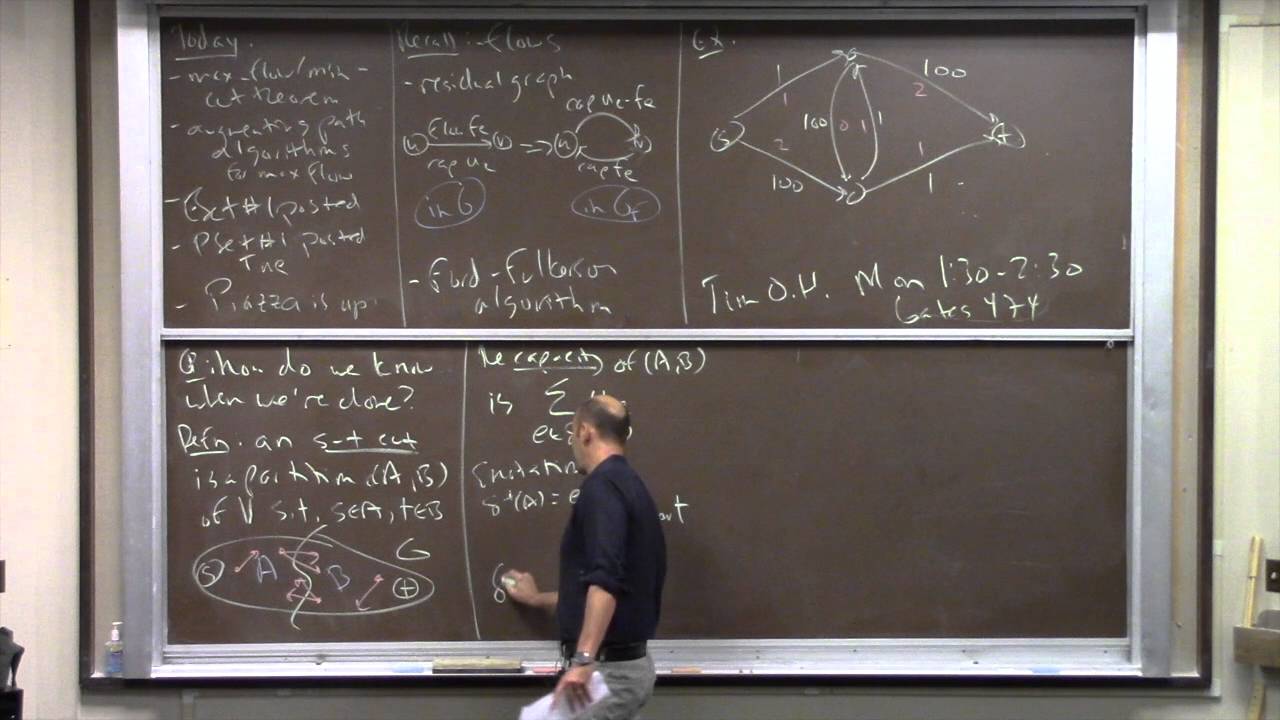 Today.
- max-flow/min-
cut theorem
- augmenting path
algorithms
for max flow
- Ex set #1 posted
- PSet #1 posted
Tue
- Piazza is up
Recall: flows
- residual graph
u flow fe v => u cap ue-fe v
cap ue cap fe
in G in Gf
- Ford-Fulkerson
algorithm
Ex.
1 100
1 2
s 100 0 1 1 t
2 1
100 1
Tim O.H. Mon 1:30-2:30
Gates 474
Q: how do we know
when we're done?
Defn. an s-t cut
is a partition (A,B)
of V s.t. s∈A, t∈B
G
s A B t
the capacity of (A,B)
is Σ
δ+(A) = out